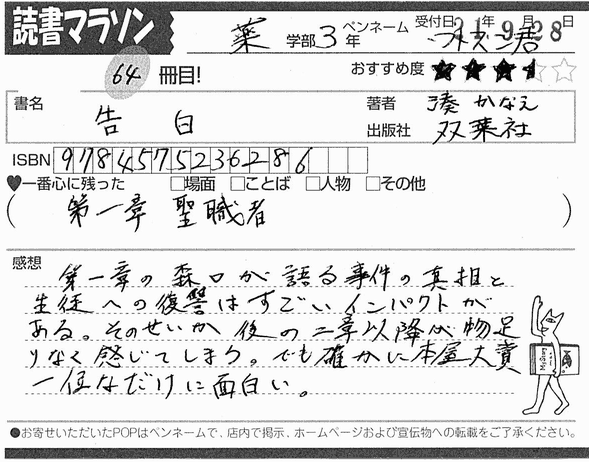 読書マラソン
薬 学部 3 年 ペンネーム 受付日 21年 9月 28日
64 冊目! おすすめ度 ★★★★☆
書名 告白 著者 湊かなえ
出版社 双葉社
ISBN 9784575236286
♥一番心に残った □場面 □ことば □人物 □その他
(第一章 聖職者)
感想
第一章の森口が語る事件の真相と
生徒への復讐はすごいインパクトが
ある。そのせいか後の二章以降が物足
りなく感じてしまう。でも確かに本屋大賞
一位なだけに面白い。
●お寄せいただいたPOPはペンネームで、店内で掲示、ホームページおよび宣伝物への転載をご了承ください。